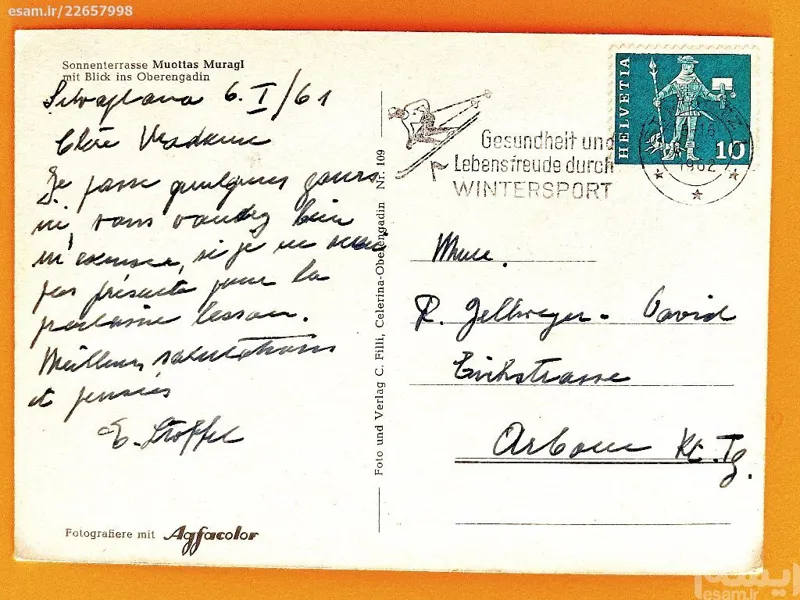 esam.ir/22657998
Sonnenterrasse Muottas Muragl
mit Blick ins Oberengadin
Silvaplana 6. I/61
Chère Madame
Je passe quelques jours
ici, vous voudrez bien
m'excuser, si je ne serai
pas présente pour la
prochaine leçon.
Meilleures salutations
et pensées
E. Stoffel
Fotografiere mit Agfacolor
Foto und Verlag C. Filli, Celerina-Oberengadin Nr. 109
Gesundheit und
Lebensfreude durch
WINTERSPORT
HELVETIA
10
1962
Mme.
R. Zellweger - David
Arbon Kt. Tg.
ایسام
esam.ir